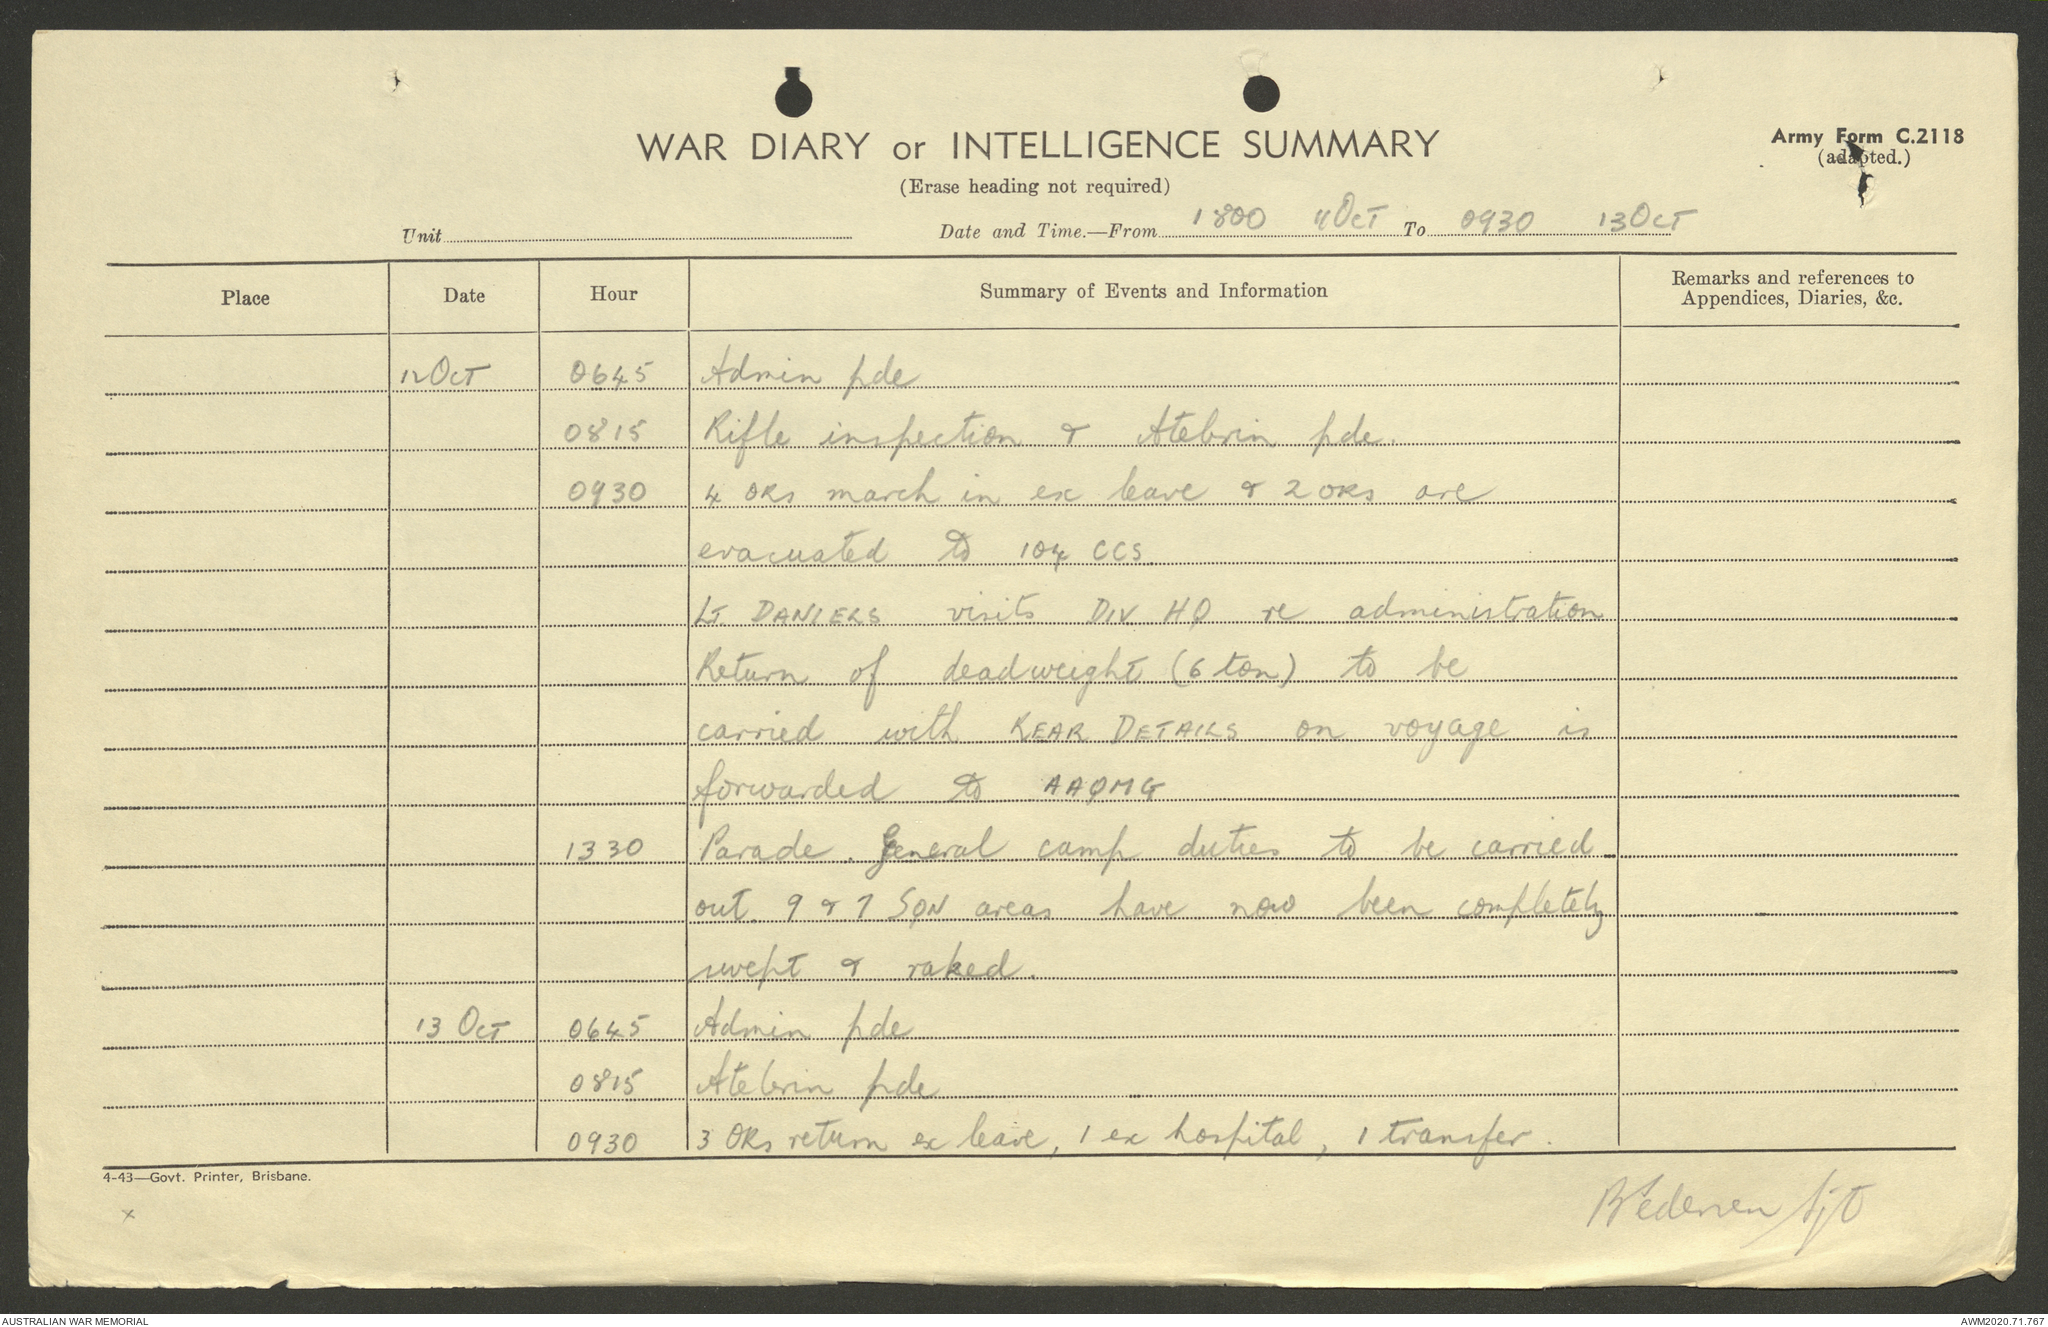 WAR DIARY or INTELLIGENCE SUMMARY
Army Form C.2118
(adapted.)
(Erase heading not required)
Unit
Date and Time.—From 1800 11 Oct To 0930 13 Oct
Place Date Hour Summary of Events and Information Remarks and references to
Appendices, Diaries, &c.
12 Oct 0645 Admin pde
0815 Rifle inspection & Atebrin pde.
0930 4 ORs march in ex leave & 2 ORs are
evacuated to 104 CCS.
Lt DANIELS visits DIV HQ re administration
Return of deadweight (6 ton) to be
carried with REAR DETAILS on voyage is
forwarded to AAQMG
1330 Parade. General camp duties to be carried
out. 9 & 7 SQN areas have now been completely
swept & raked.
13 Oct 0645 Admin pde
0815 Atebrin pde
0930 3 ORs return ex leave, 1 ex hospital, 1 transfer.
4-43—Govt. Printer, Brisbane.
x
Pedersen Sjt
AUSTRALIAN WAR MEMORIAL
AWM2020.71.767